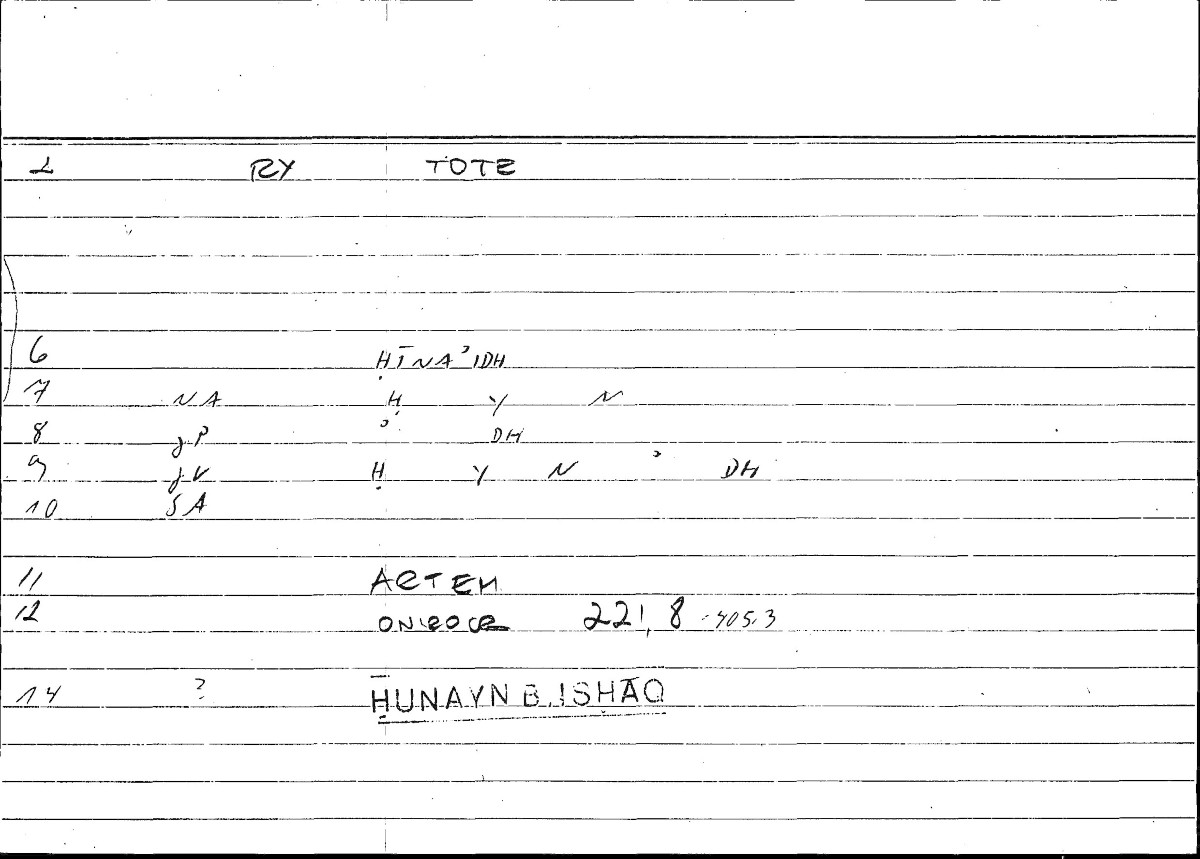 1 RY TOTE
6 ḤĪNAʾIDH
7 NA Ḥ Y N
8 gP ʾ DH
9 gV Ḥ Y N ʾ DH
10 SA
11 ARTEM
12 ONIROCR 221,8 - 405.3
14 ? ḤUNAYN B. ISḤĀQ